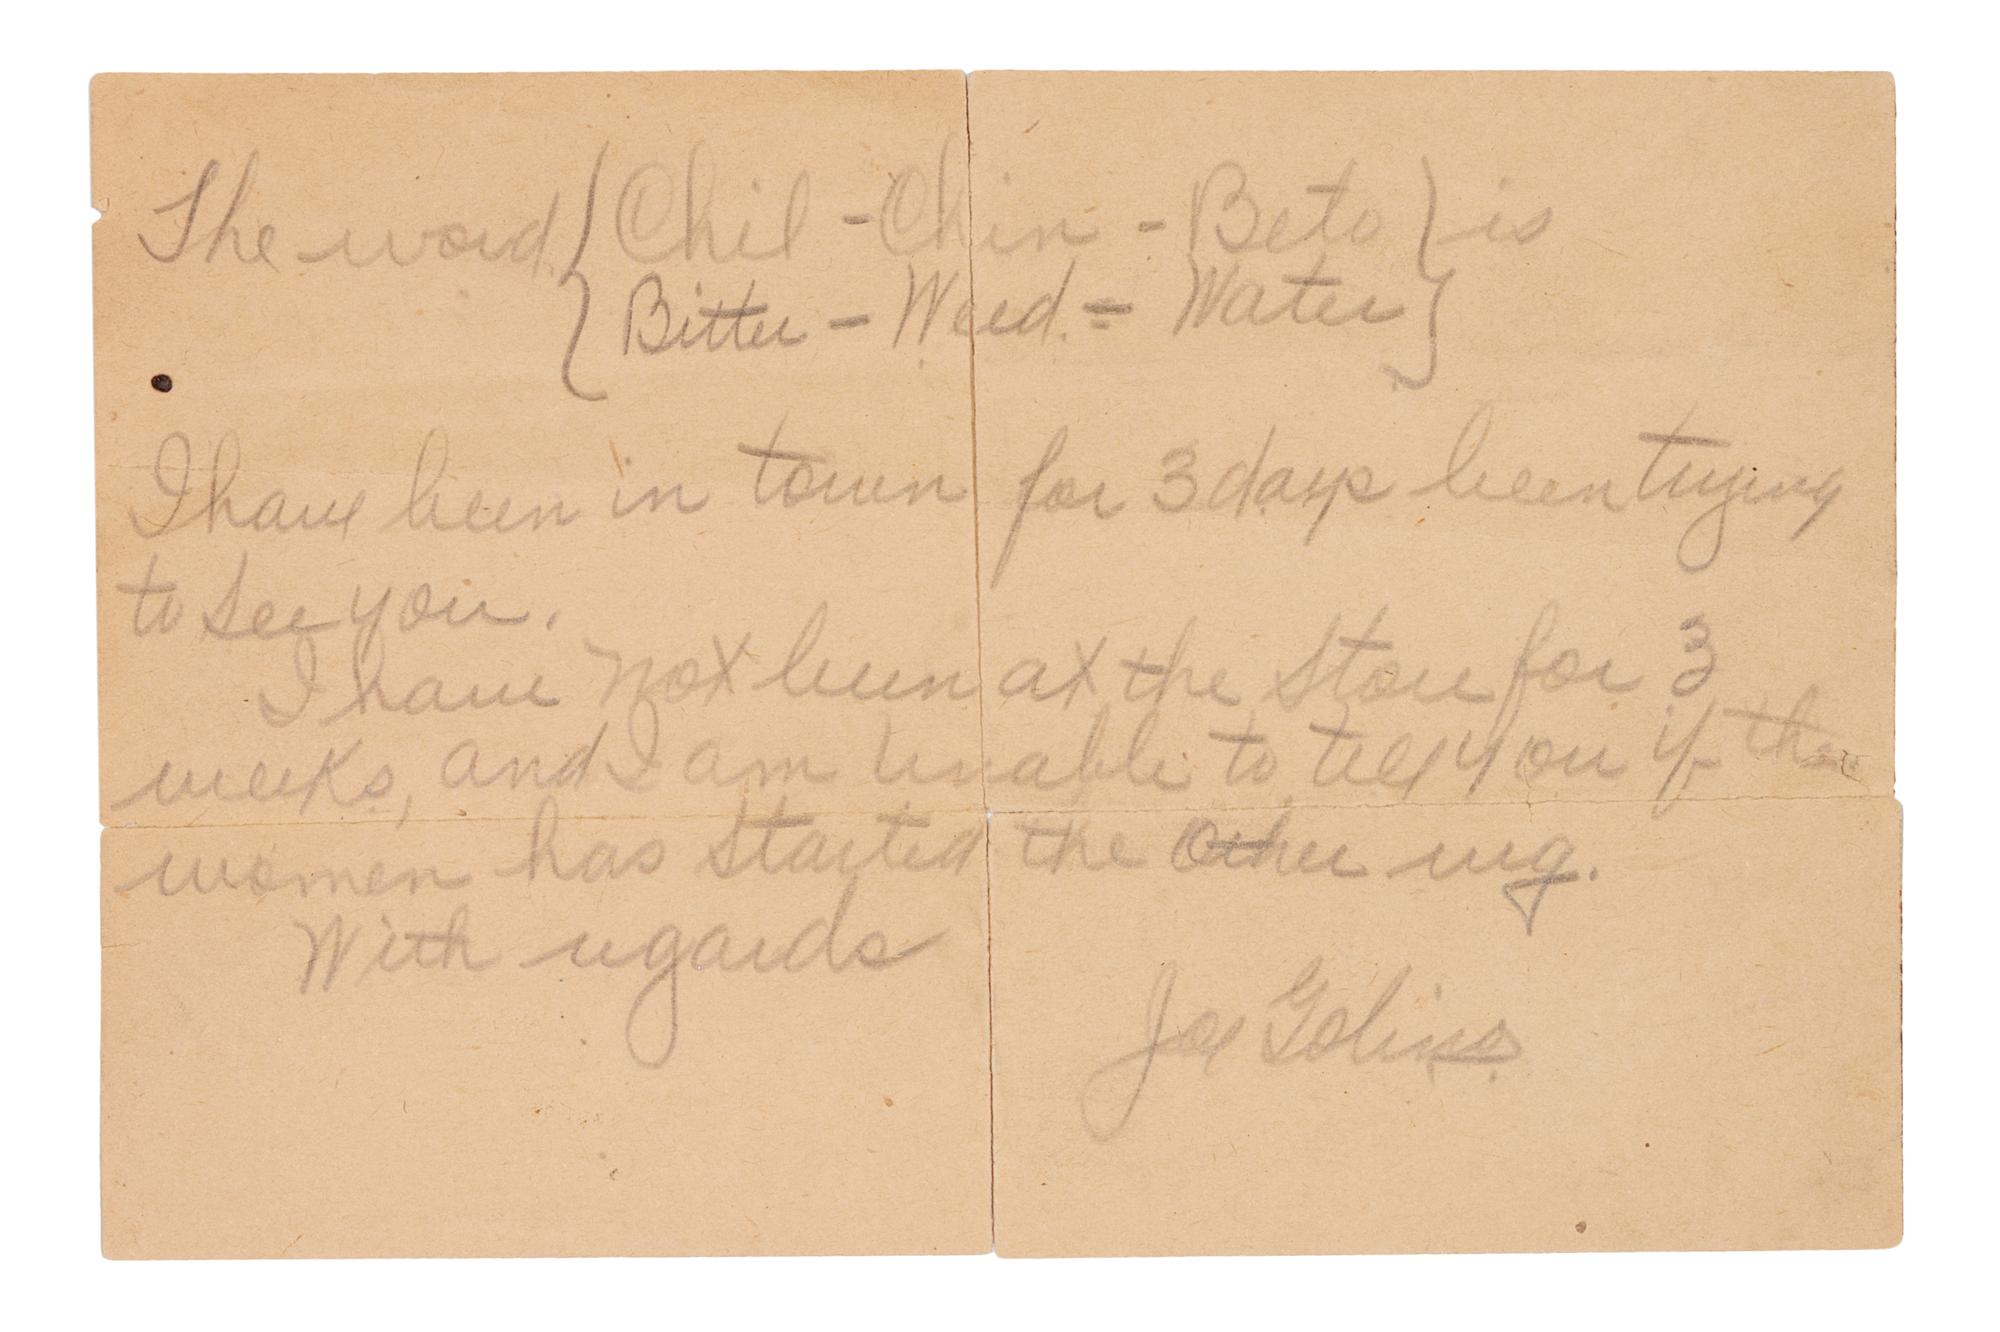 The word { Chil - Chin - Beto } is
{ Bitter - Weed. = Water }
I have been in town for 3 days been trying
to see you.
I have not been at the store for 3
weeks, and I am unable to tell you if the
women has started the other rug.
With regards
Joe